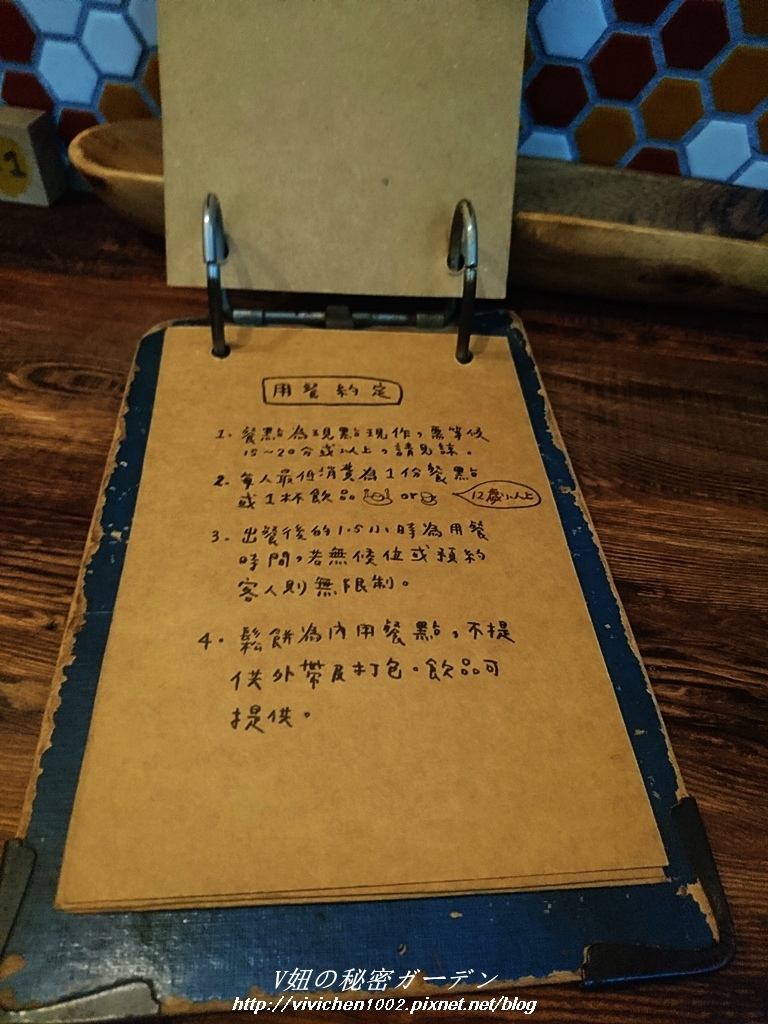 用餐約定
1. 餐點為現點現作，需等候
15~20分或以上，請見諒。
2. 每人最低消費為1份餐點
或1杯飲品 or
12歲以上
3. 出餐後的1.5小時為用餐
時間，若無候位或預約
客人則無限制。
4. 鬆餅為內用餐點，不提
供外帶及打包。飲品可
提供。
V妞の秘密ガーデン
http://vivichen1002.pixnet.net/blog